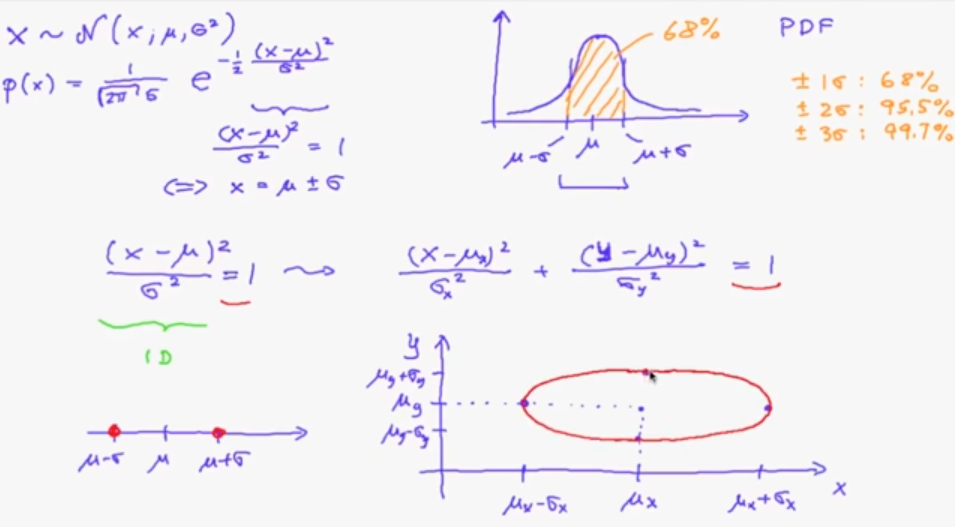 x ~ N(x; μ, σ²)
p(x) = 1/(√(2π) σ) e^(-1/2 (x-μ)²/σ²)
(x-μ)²/σ² = 1
<=> x = μ ± σ
68%
μ-σ μ μ+σ
PDF
± 1σ : 68%
± 2σ : 95,5%
± 3σ : 99.7%
(x - μ)²/σ² = 1 ⇝ (x-μx)²/σx² + (y-μy)²/σy² = 1
1D
μ-σ μ μ+σ
y
μy+σy
μy
μy-σy
μx-σx μx μx+σx x